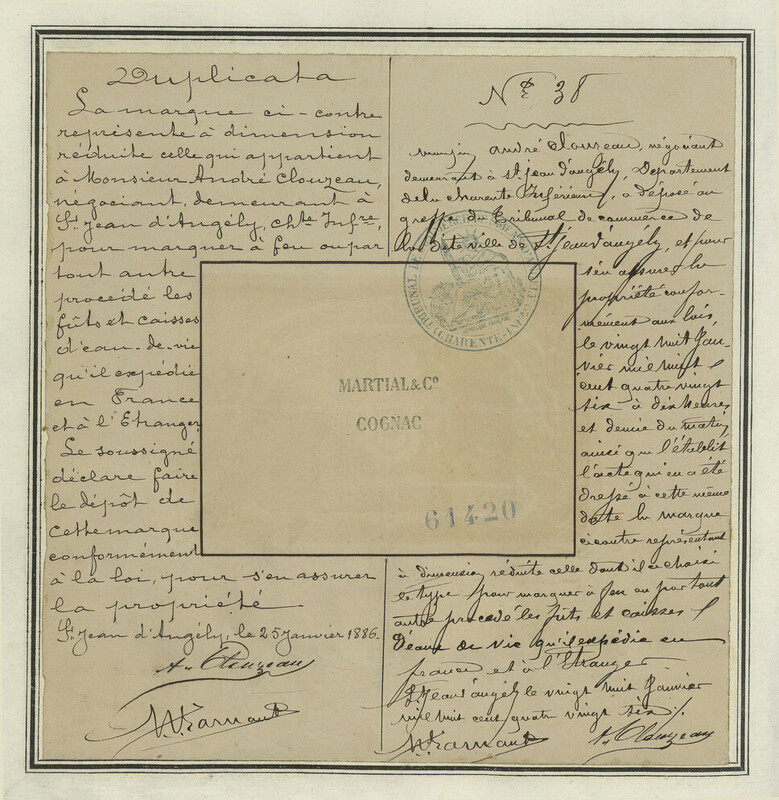 Duplicata
La marque ci-contre
représente à dimension
réduite celle qui appartient
à Monsieur André Clouzeau,
négociant, demeurant à
St Jean d'Angély, chte Infre,
pour marquer à feu ou par
tout autre
procédé les
fûts et caisses
d'eau-de-vie
qu'il expédie
en France
et à l'Etranger.
Le soussigné
déclare faire
le dépôt de
cette marque
conformément
à la loi, pour s'en assurer
la propriété
St Jean d'Angély, le 25 Janvier 1886.
A. Clouzeau
MARTIAL & Co
COGNAC
61420
No 38
andré Clouzeau, négociant
demeurant à St jean d'angély, Departement
dela charente Inférieure, a déposé au
greffe du Tribunal de commerce de
la dite ville de St Jean d'angély, et pour
s'en assurer la
propriété confor-
mément aux lois,
le vingt huit Jan-
vier mil huit
cent quatre vingt
six à dix heures
et demie du matin,
ainsi que l'établit
l'acte qui en a été
dressé à cette même
date la marque
ci contre représentant
à dimension réduite celle dont il a choisi
le type pour marquer à feu ou par tout
autre procédé les fûts et caisses
Deaux de vie qu'il expédie en
france et à l'Etranger
St Jean d'angély le vingt huit Janvier
mil huit cent quatre vingt six
A. Clouzeau
TRIBUNAL DE COMMERCE
(CHARENTE-INFRE)